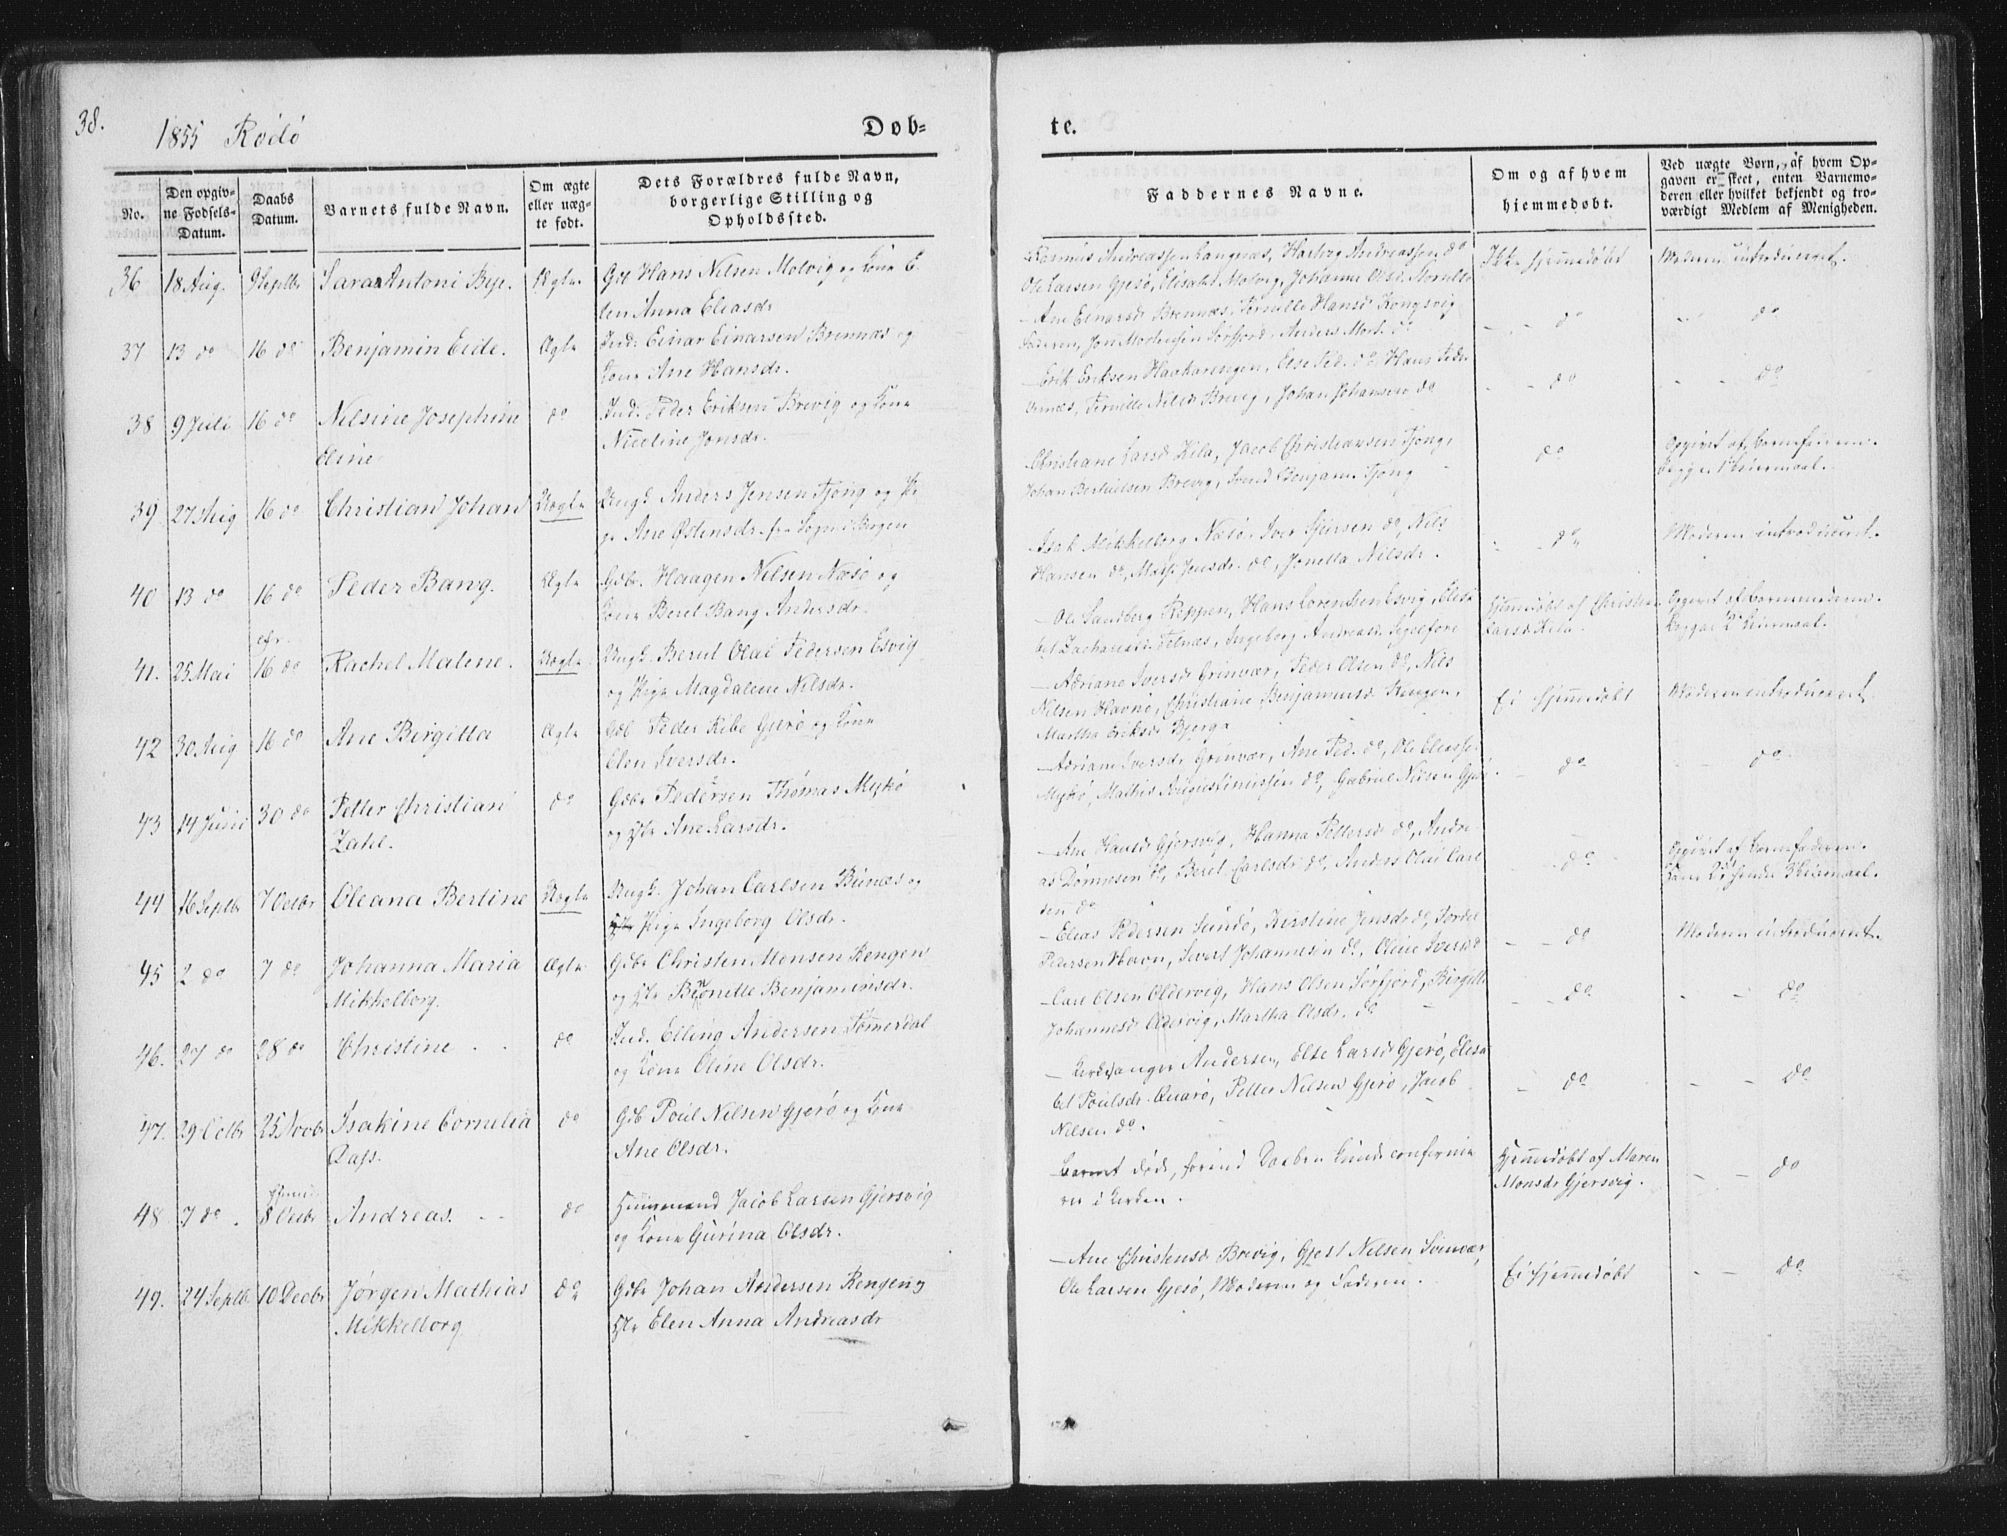 38.
1855 Rödö
Döb-
te.
No.
Den opgiv-
ne Fødsels-
Datum.
Daabs
Datum.
Barnets fulde Navn.
Om ægte
eller uæg-
te født.
Dets Forældres fulde Navn,
borgerlige Stilling og
Opholdssted.
Faddernes Navne.
Om og af hvem
hjemmedøbt.
Ved uægte Børn, af hvem Op-
gaven er skeet, enten Barnemo-
deren eller hvilket bekjendt og tro-
værdigt Medlem af Menigheden.
36 18 Aug. 9 Septbr Sara Antoni Beje. Ægte Gdb Hans Nilsen Molvig og Kone E-
len Anna Eliasdr
Rasmus Andreassen Langnæs, Hartvig Andreassen do
Ole Larsen Gjesö, Elisabet Molvig, Johanna Olsd. Mornllo
Ikke hjemmedøbt
Moderen introduceret.
37 13 do 16 do Benjamin Eide. Ægte Ind. Einar Einarsen Brennæs og
Kone Ane Hansdr.
- Ane Einarsdr Brennæs, Pernille Hansd Kongsvig
Faderen, Jon Mortensen Sörfjord, Anders Mort. do
do
do
38 9 Juli 16 do Nilsine Josephine
Eline
do Ind. Peder Eriksen Brevig og Kone
Nicoline Jonsdr.
- Erik Eriksen Haakaringen, Else Ped. do Hans Peder
Ornæs, Pernille Nilsd Brevig, Johan Johansen do
do
do
39 27 Aug 16 do Christian Johan Uægte Ungk. Anders Jensen Tjong og Pi-
ge Ane Østensdr. fra Sogn i Bergen
Christiane Larsd Kila, Jacob Christiansen Tjong,
Johan Bertheussen Brevig, Svend Benjam. Tjong
do
Opgivet af Barnefaderen.
Begges 1ste Leiermaal.
40 13 do 16 do Peder Bang. Ægte Gdbr. Haagen Nilsen Næsö og
Kone Beret Bang Andersdr.
Isak Mikkelborg Næsö. Iver Siversen do, Nils
Hansen do, Mars. Jensdr. do, Jonetta Nilsdr.
do
Moderen introduceret.
41. 25 Mai 16 do Rachel Malene. Uægte Ungk. Bernt Olai Pedersen Esvig
og Pige Magdalene Nilsdr.
- Ole Sandberg Reppen, Hans Lorentsen Esvig, Elisa
bet Zachariasd. Telnæs, Ingeborg Andreasd. Segelfore
Hjemmedøbt af Christiane
Larsd Kila.
Opgivet af Barnemoderen.
Begges 2det Leiermaal.
42 30 Aug 16 do Ane Birgitta Ægte Gdb Peder Ribe Gjerö og Kone
Elen Iversdr.
- Adriane Iversdr Grinvær, Peder Olsen do, Nils
Nilsen Havnö, Christiane Benjaminsd Rengen,
Martha Eriksdr Bjerga
Ei hjemmedøbt
Moderen introduceret
43 14 Juni 30 do Petter Christian
Zahl.
do Gdbr Pedersen Thomas Mykö
og Hstr Ane Larsdr.
- Adriane Iversdr Grinvær, Ane Ped. do, Ole Eliasse
Mykö, Mathis Augustinussen do, Gabriel Nilsen Gjerö.
do
do
44 16 Septbr 7 Octbr Oleana Bertine Uægte Ungk. Johan Carlsen Bunæs og
Pige Ingeborg Olsdr.
- Ane Hansd Gjersvig, Hanna Pettersd do, Andre
as Dönnesen do, Beret Carlsdr do, Anders Olai Carl
sen do
do
Opgivet af Barnefaderen.
45 2 do 7 do Johanna Maria
Mikkelborg.
Ægte Gdbr Christen Monsen Rengen
og Hstr Benonette Benjaminsdr.
- Elias Pedersen Sundö, Kirstine Jensdr do, Tordel
Pedersen Havn, Sivert Johannesen do, Oline Iversd
do
Moderen introduceret.
46. 27 do 28 do Christine do Ind. Elling Andersen Tömmerdal
og Kone Oline Olsdr.
- Carl Olsen Oldervig, Hans Olsen Sörfjord, Birgitte
Johannesd Oldervig, Martha Olsdr. do
do
do
47. 29 Octbr 25 Novbr Isakine Cornelia
Dass.
do Gdb Poul Nilsen Gjerö og Kone
Ane Olsdr.
- Kirkesanger Andersen, Else Larsdr Gjerö, Elisa
bet Poulsdr. Quarö, Petter Nilsen Gjerö, Jacob
Nilsen do.
do
do
48 7 do. 8 Octbr Andreas. do Huusmand Jacob Larsen Gjersvig
og Kone Gurina Olsdr.
Barnet döde, forind Daaben kunde confirme
res i Kirken.
Hjemmedøbt af Maren
Monsdr Gjersvig.
do
49. 24 Septb 10 Decbr Jørgen Mathias
Mikkelborg
do Gdbr Johan Andersen Rengen og
Hstr Elen Anna Andreasdr
- Ane Christensd Brevig, Gjert Nilsen Svinvær,
Ole Larsen Gjesö, Moderen og Faderen.
Ei hjemmedøbt
do